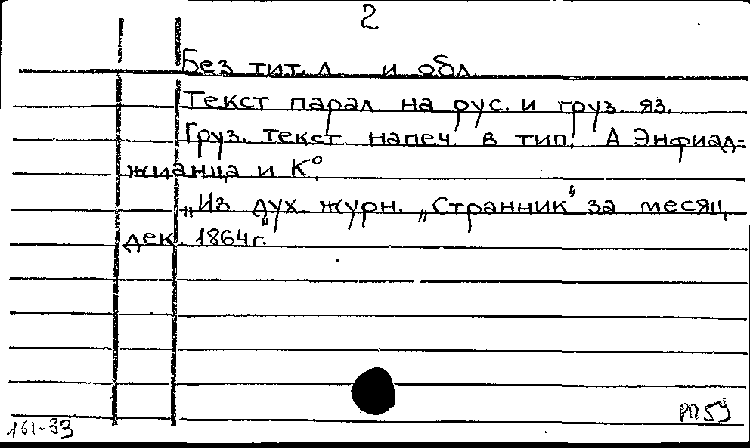 2
Без тит. л. и обл.
Текст парал. на рус. и груз. яз.
Груз. текст напеч. в тип. А Энфиад-
жианца и К°.
„Из дух. журн. „Странник“ за месяц
дек. 1864г.“
161-33
РП 59